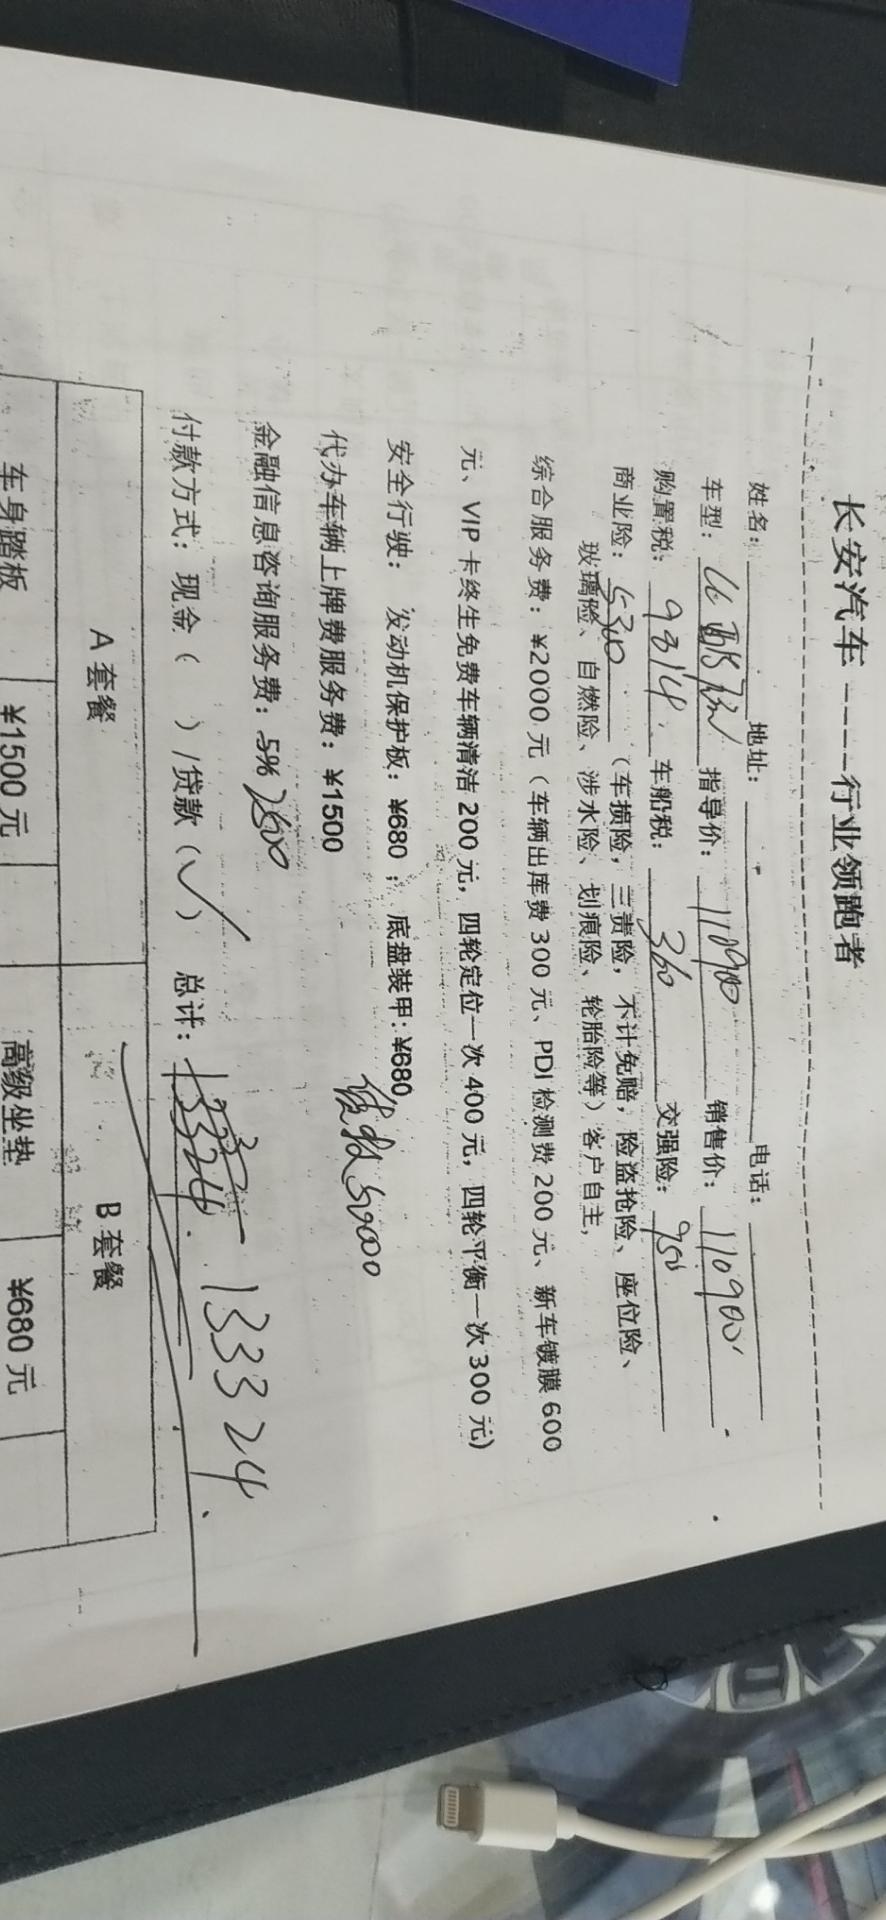 长安汽车 ----行业领跑者
姓名: 地址: 电话:
车型: 指导价: 110900 销售价: 110900
购置税: 9314. 车船税: 360 交强险: 950
商业险: 5300 (车损险, 三责险, 不计免赔, 险盗抢险、座位险、
玻璃险、自燃险、涉水险、划痕险、轮胎险等) 客户自主,
综合服务费: ¥2000 元 (车辆出库费 300 元、PDI 检测费 200 元、新车镀膜 600
元、VIP 卡终生免费车辆清洁 200 元, 四轮定位一次 400 元, 四轮平衡一次 300 元)
安全行驶: 发动机保护板: ¥680 ; 底盘装甲: ¥680
代办车辆上牌费服务费: ¥1500
贷款 50000
金融信息咨询服务费: 5% 2500
付款方式: 现金 ( ) /贷款 (✓) 总计: 133324.
A 套餐 B 套餐
车身踏板 ¥1500 元 高级坐垫 ¥680 元